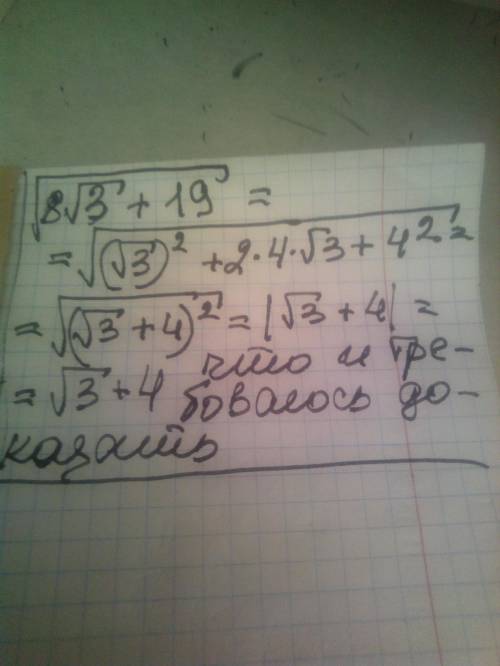 √(8√3 + 19) =
= √((√3)² + 2·4·√3 + 4²) =
= √((√3 + 4)²) = |√3 + 4| =
= √3 + 4 что и тре-
бовалось до-
казать